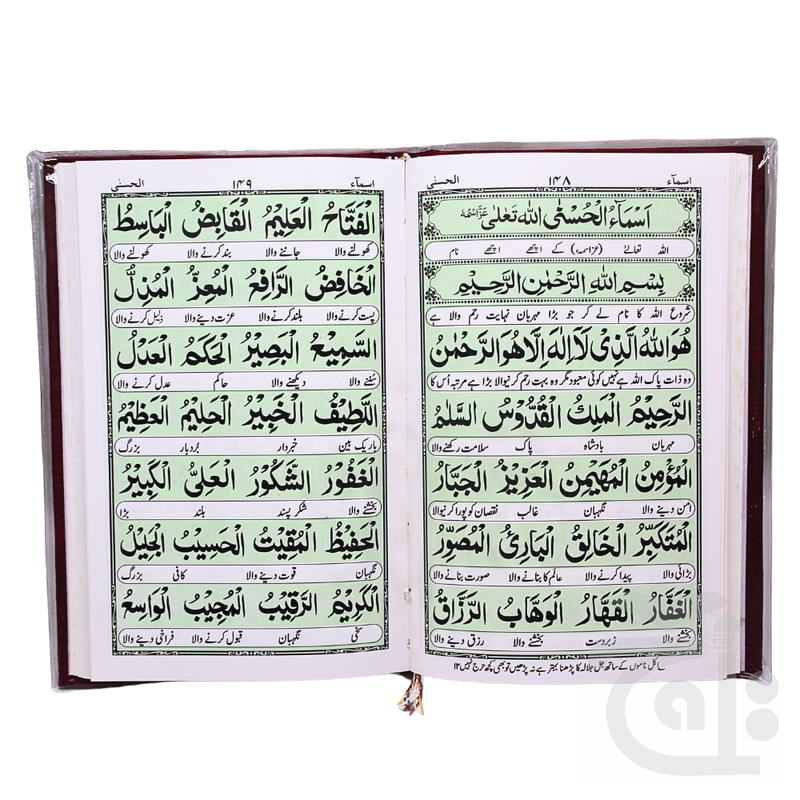 اسمآء ۱۴۸ الحسنٰی
اَسْمَآءُ الْحُسْنٰی اللّٰهِ تَعَالٰی عَزَّاسْمُهٗ
اللہ تعالےٰ (عزاسمہ) کے اچھے اچھے نام
بِسْمِ اللّٰهِ الرَّحْمٰنِ الرَّحِیْمِ
شروع اللہ کا نام لے کر جو بڑا مہربان نہایت رحم والا ہے
هُوَ اللّٰهُ الَّذِیْ لَاۤ اِلٰهَ اِلَّا هُوَ الرَّحْمٰنُ
وہ ذات پاک اللہ ہے نہیں کوئی معبود مگر وہ بہت رحم کرنیوالا بڑا ہے مرتبہ اُس کا
الرَّحِیْمُ الْمَلِكُ الْقُدُّوْسُ السَّلٰمُ
مہربان بادشاہ پاک سلامت رکھنے والا
الْمُؤْمِنُ الْمُهَیْمِنُ الْعَزِیْزُ الْجَبَّارُ
امن دینے والا نگہبان غالب نقصان کو پورا کرنیوالا
الْمُتَكَبِّرُ الْخَالِقُ الْبَارِئُ الْمُصَوِّرُ
بڑائی والا پیدا کرنے والا عالم کا بنانے والا صورت بنانے والا
الْغَفَّارُ الْقَهَّارُ الْوَهَّابُ الرَّزَّاقُ
بخشنے والا زبردست بخشنے والا رزق دینے والا
کل ناموں کے ساتھ جل جلالہ کا پڑھنا بہتر ہے نہ پڑھیں تو بھی کچھ حرج نہیں ۱۲
اسمآء ۱۴۹ الحسنٰی
الْفَتَّاحُ الْعَلِیْمُ الْقَابِضُ الْبَاسِطُ
کھولنے والا جاننے والا بند کرنے والا کھولنے والا
الْخَافِضُ الرَّافِعُ الْمُعِزُّ الْمُذِلُّ
پست کرنے والا بلند کرنے والا عزت دینے والا ذلیل کرنے والا
السَّمِیْعُ الْبَصِیْرُ الْحَكَمُ الْعَدْلُ
سُننے والا دیکھنے والا حاکم عدل کرنے والا
اللَّطِیْفُ الْخَبِیْرُ الْحَلِیْمُ الْعَظِیْمُ
باریک بین خبردار بُردبار بزرگ
الْغَفُوْرُ الشَّكُوْرُ الْعَلِیُّ الْكَبِیْرُ
بخشنے والا شکر پسند بلند بڑا
الْحَفِیْظُ الْمُقِیْتُ الْحَسِیْبُ الْجَلِیْلُ
نگہبان قوت دینے والا کافی بزرگ
الْكَرِیْمُ الرَّقِیْبُ الْمُجِیْبُ الْوَاسِعُ
سخی نگہبان قبول کرنے والا فراخی دینے والا